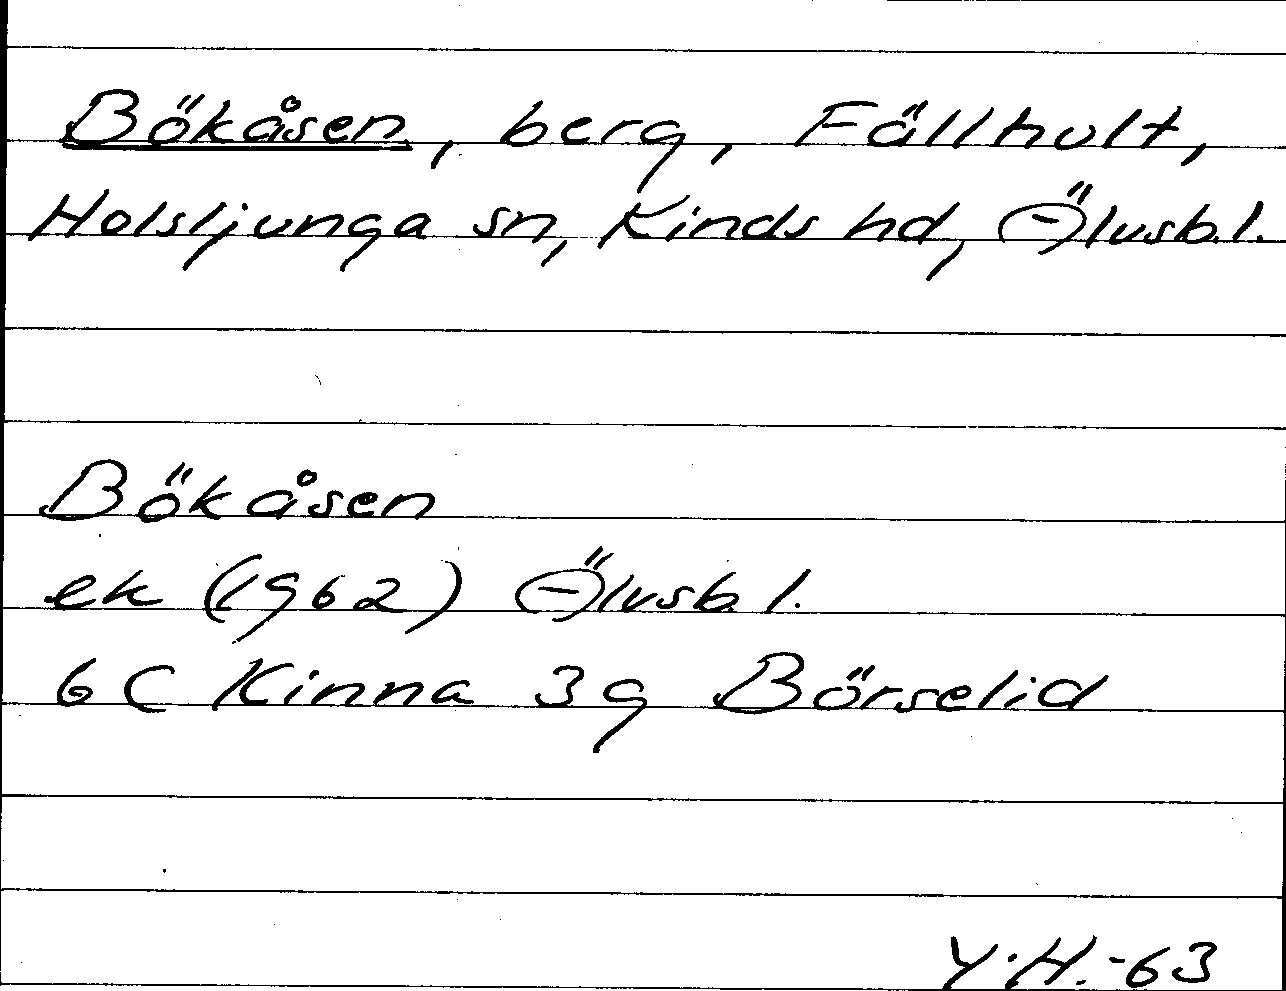 Bökåsen, berg, Fällhult,
Holsljunga sn, Kinds hd, Älvsb.l.
Bökåsen
ek (1962) Älvsb.l.
6C Kinna 3g Börselid
Y.H.-63